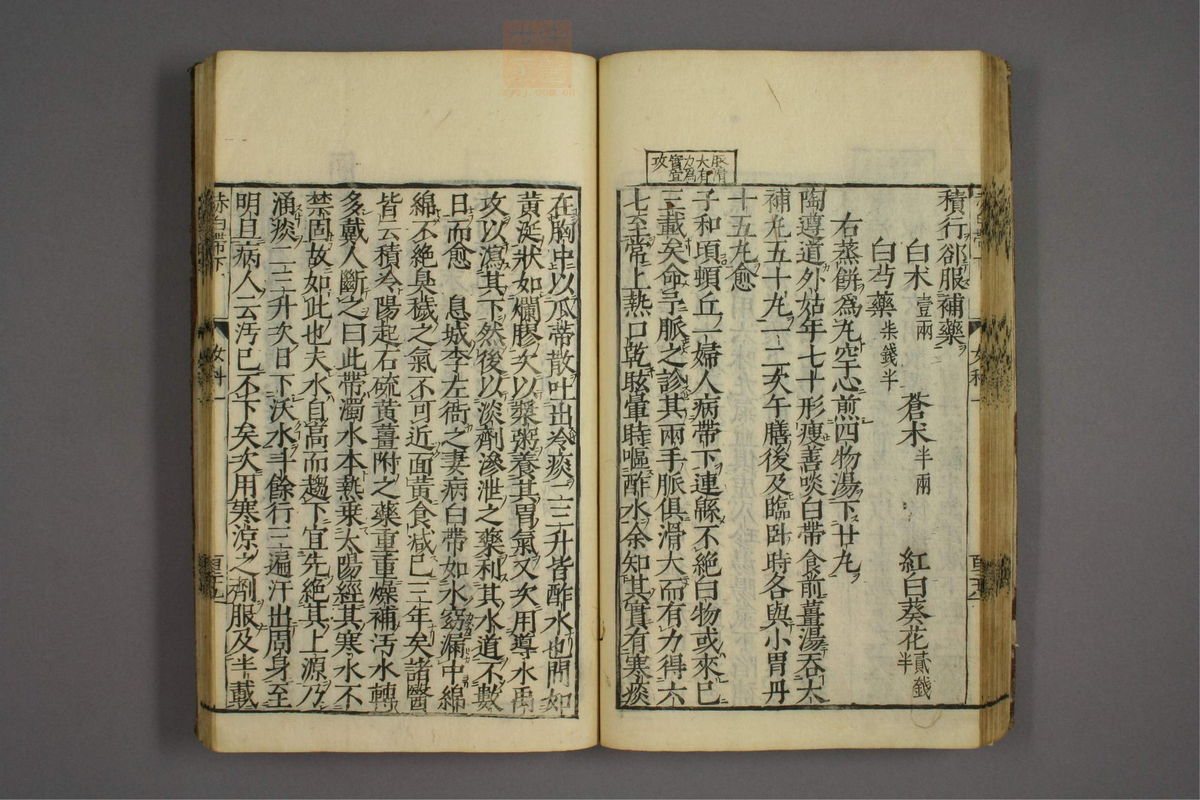 脉滑
大有
力為
實宜
攻
積行卻服補藥
白朮壹兩 蒼朮半兩 紅白葵花貳錢半
白芍藥柒錢半
右蒸餅為丸空心煎四物湯下廿丸
陶遵道外姑年七十形瘦善啖白帶食前薑湯吞大
補丸五十丸一二次午膳後及臨臥時各與小胃丹
十五丸愈
子和頃頓丘一婦人病帶下連緜不絕白物或來已
三載矣命予脈之診其兩手脈俱滑大而有力得六
七至常上熱口乾眩暈時嘔酢水余知其實有寒痰
在胸中以瓜蒂散吐出冷痰二三升皆酢水也間如
黃涎狀如爛膠次以漿粥養其胃氣又次用導水禹
攻以瀉其下然後以淡劑滲泄之藥利其水道不數
日而愈 息城李左衙之妻病白帶如水窈漏中綿
綿不絕臭穢之氣不可近面黃食減已三年矣諸醫
皆云積冷陽起石硫黃薑附之藥重重燥補汚水轉
多戴人斷之曰此帶濁水本熱乘太陽經其寒水不
禁固故如此也夫水自高而趨下宜先絕其上源乃
涌痰二三升次日下沃水斗餘行三遍汗出周身至
明旦病人云汚已不下矣次用寒涼之劑服及半載
赤白帶下 女科一